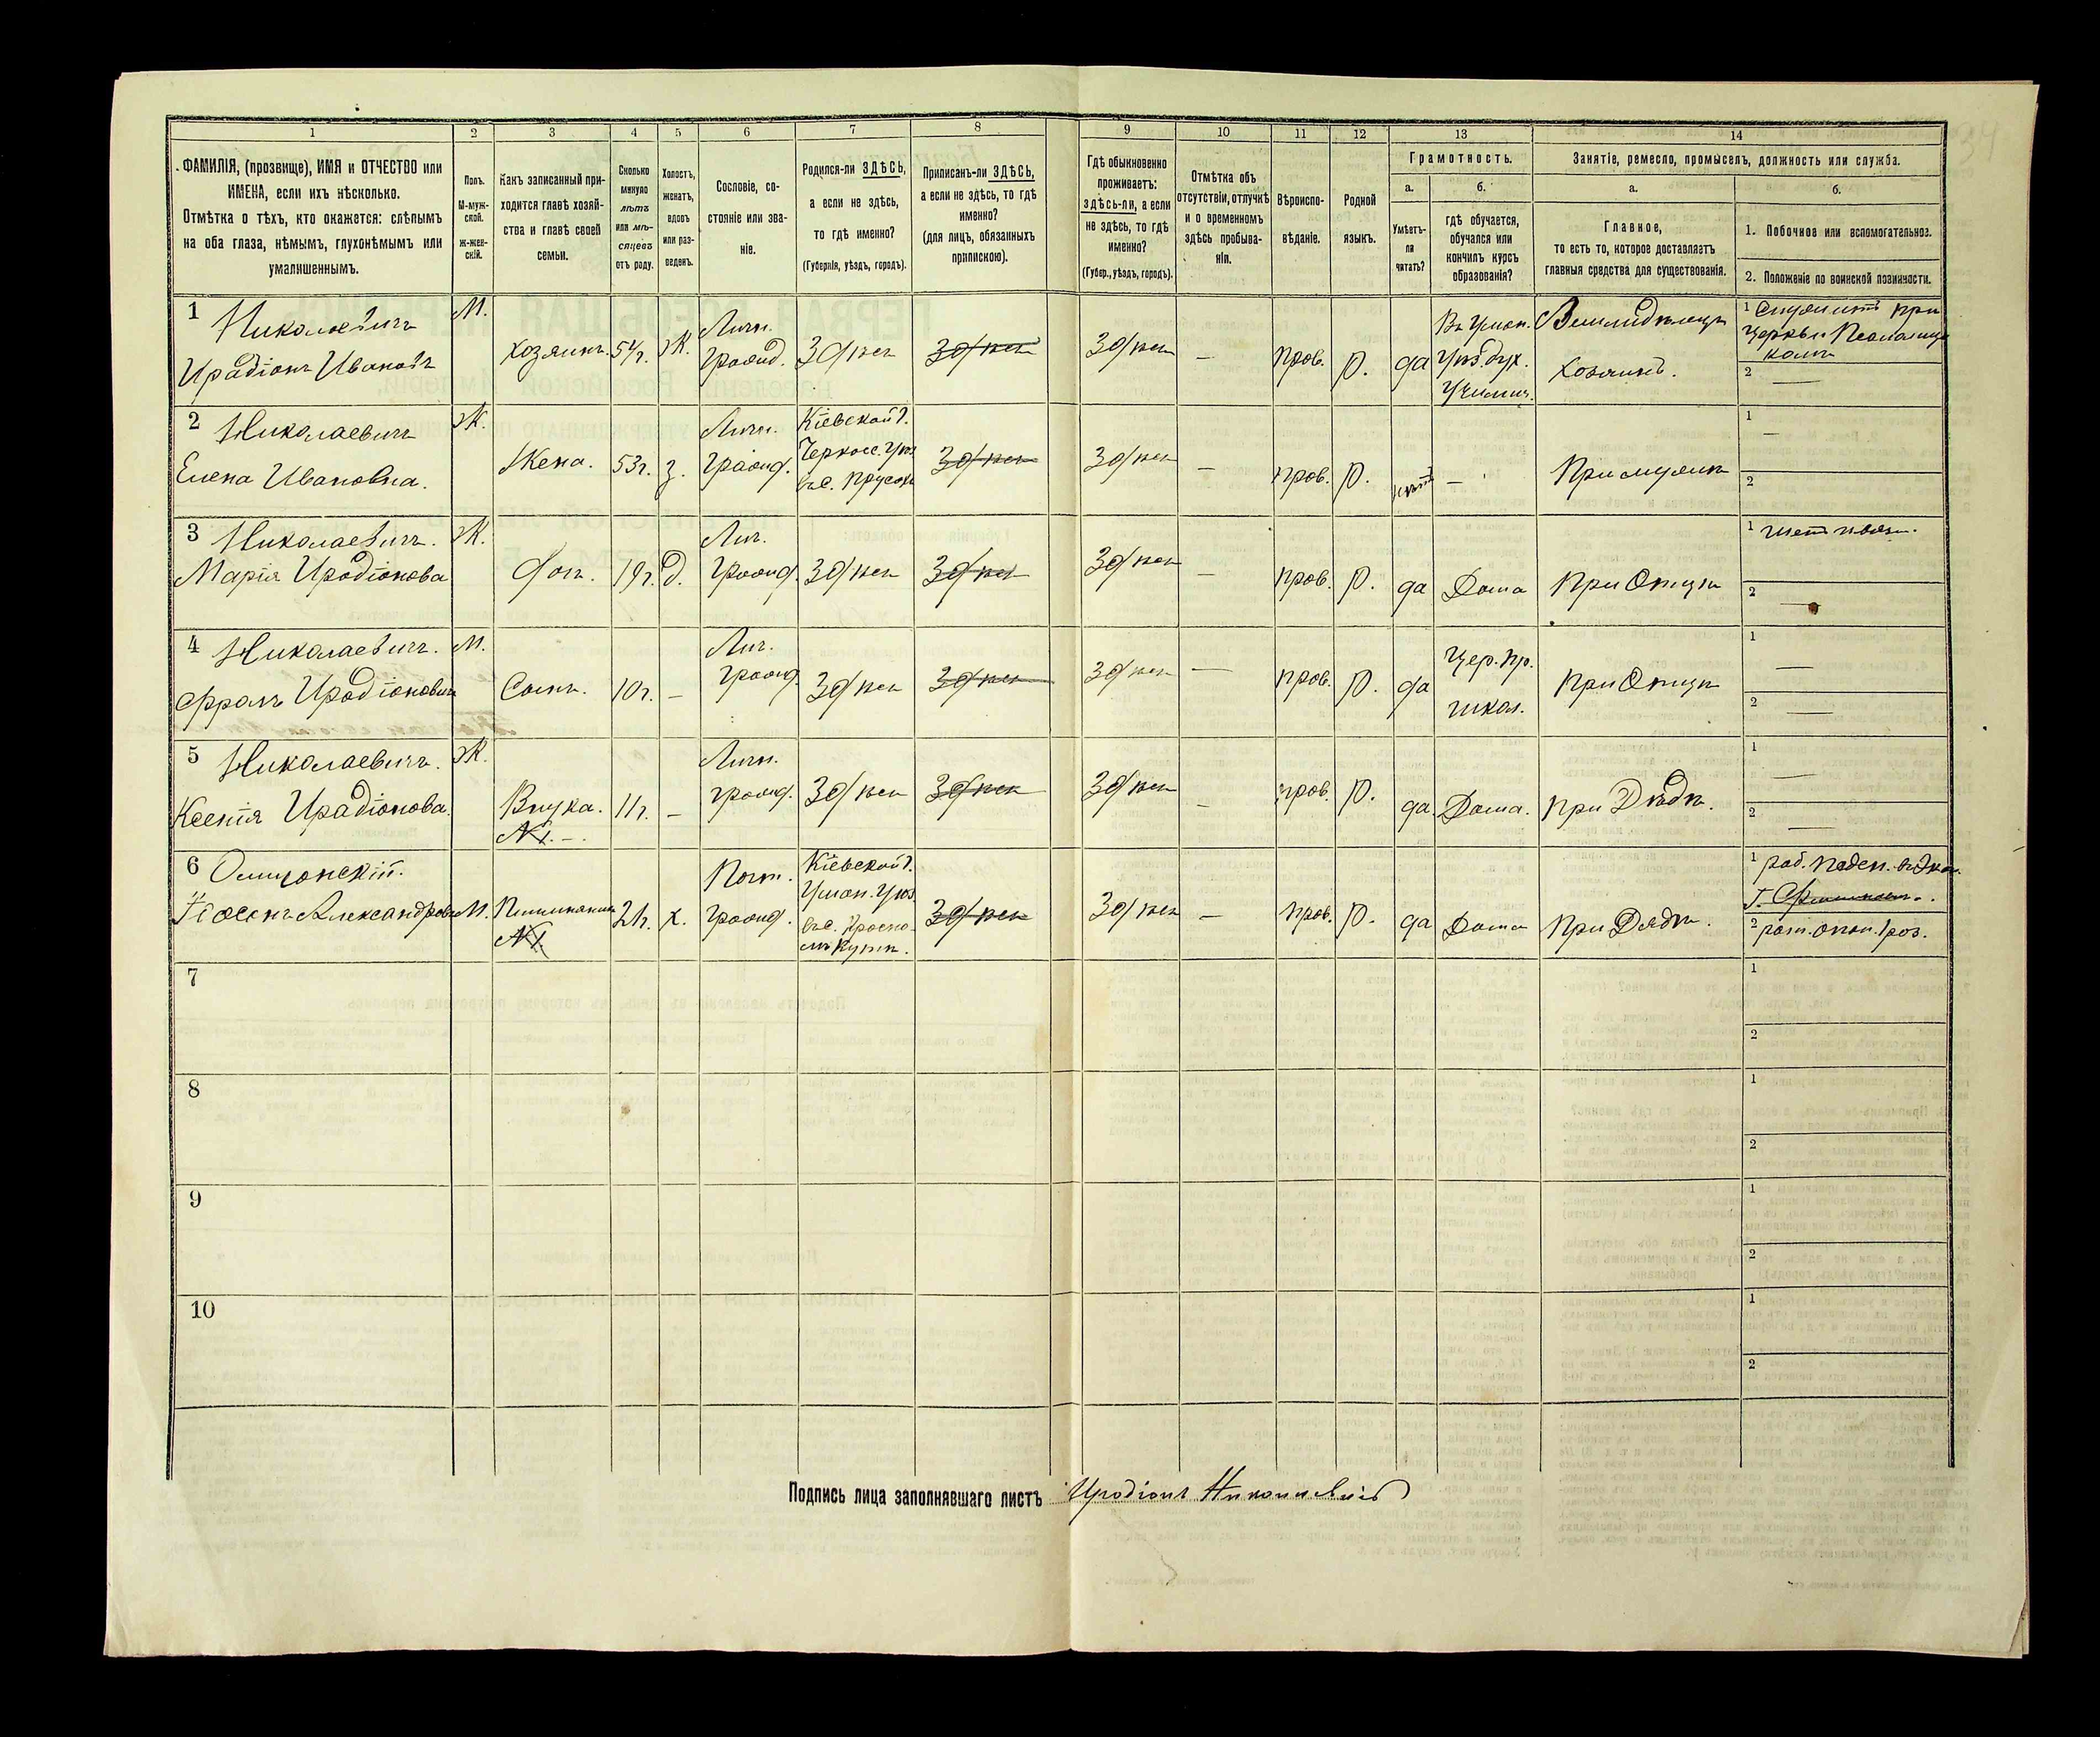 1 2 3 4 5 6 7 8 9 10 11 12 13 14
ФАМИЛІЯ, (прозвище), ИМЯ и ОТЧЕСТВО или
ИМЕНА, если ихъ нѣсколько.
Отмѣтка о тѣхъ, кто окажется: слѣпымъ
на оба глаза, нѣмымъ, глухонѣмымъ или
умалишеннымъ.
Полъ.
М-муж-
ской.
ж-жен-
скій.
Какъ записанный при-
ходится главѣ хозяй-
ства и главѣ своей
семьи.
Сколько
минуло
лѣтъ
или мѣ-
сяцевъ
отъ роду.
Холостъ,
женатъ,
вдовъ
или раз-
веденъ.
Сословіе, со-
стояніе или зва-
ніе.
Родился-ли ЗДѢСЬ,
а если не здѣсь,
то гдѣ именно?
(Губернія, уѣздъ, городъ).
Приписанъ-ли ЗДѢСЬ,
а если не здѣсь, то гдѣ
именно?
(для лицъ, обязанныхъ
припискою).
Гдѣ обыкновенно
проживаетъ:
здѣсь-ли, а если
не здѣсь, то гдѣ
именно?
(Губер., уѣздъ, городъ).
Отмѣтка объ
отсутствіи, отлучкѣ
и о временномъ
здѣсь пребыва-
ніи.
Вѣроиспо-
вѣданіе.
Родной
языкъ.
Грамотность.
а.
Умѣетъ-
ли
читать?
б.
гдѣ обучается,
обучался или
кончилъ курсъ
образованія?
Занятіе, ремесло, промыселъ, должность или служба.
а.
Главное,
то есть то, которое доставляетъ
главныя средства для существованія.
б.
1. Побочное или вспомогательное.
2. Положеніе по воинской повинности.
1 Николаевичъ
Ирадіонъ Ивановъ
М.
Хозяинъ.
54г.
Ж.
Личн.
гражд.
Здѣсь
Здѣсь
Здѣсь
—
прав.
р.
да
Въ Уман.
Уѣз. дух.
Училищ.
Землидѣлецъ
Хозяинъ.
1 Служитъ при
Церкви Псаломщи
комъ
2 —
2 Николаевичъ
Елена Ивановна.
Ж.
Жена.
53г.
з.
Личн.
гражд.
Кіевской г.
Черкасс. Уѣз.
въ с.
Здѣсь
Здѣсь
—
прав.
р.
нѣтъ
—
При мужѣ
1 —
2
3 Николаевичъ.
Марія Ирадіонова
Ж.
Доч.
19г.
д.
Лич.
гражд.
Здѣсь
Здѣсь
Здѣсь
—
прав.
р.
да
Дома
При Отцѣ
1
2 —
4 Николаевичъ.
Фролъ Ирадіоновичъ
М.
Сынъ.
10г.
—
Лич.
гражд.
Здѣсь
Здѣсь
Здѣсь
—
прав.
р.
да
Цер. пр.
школ.
При Отцѣ
1 —
2 —
5 Николаевичъ.
Ксенія Ирадіонова.
Ж.
Внука.
№1.—
11г.
—
Личн.
гражд.
Здѣсь
Здѣсь
Здѣсь
—
прав.
р.
да.
Дома.
При Дѣдѣ.
1 —
2 —
6
Александров
М.
Племянникъ
№1
21г.
х.
Поч.
гражд.
Кіевской г.
Уман. Уѣз.
въ с.
Здѣсь
Здѣсь
—
прав.
р.
да
Дома
При Дядѣ.
1 раб. поден.
2 рат. опол. 1 раз.
7 1
2
8 1
2
9 1
2
10 1
2
Подпись лица заполнявшаго листъ Иродіонъ Николаевичъ